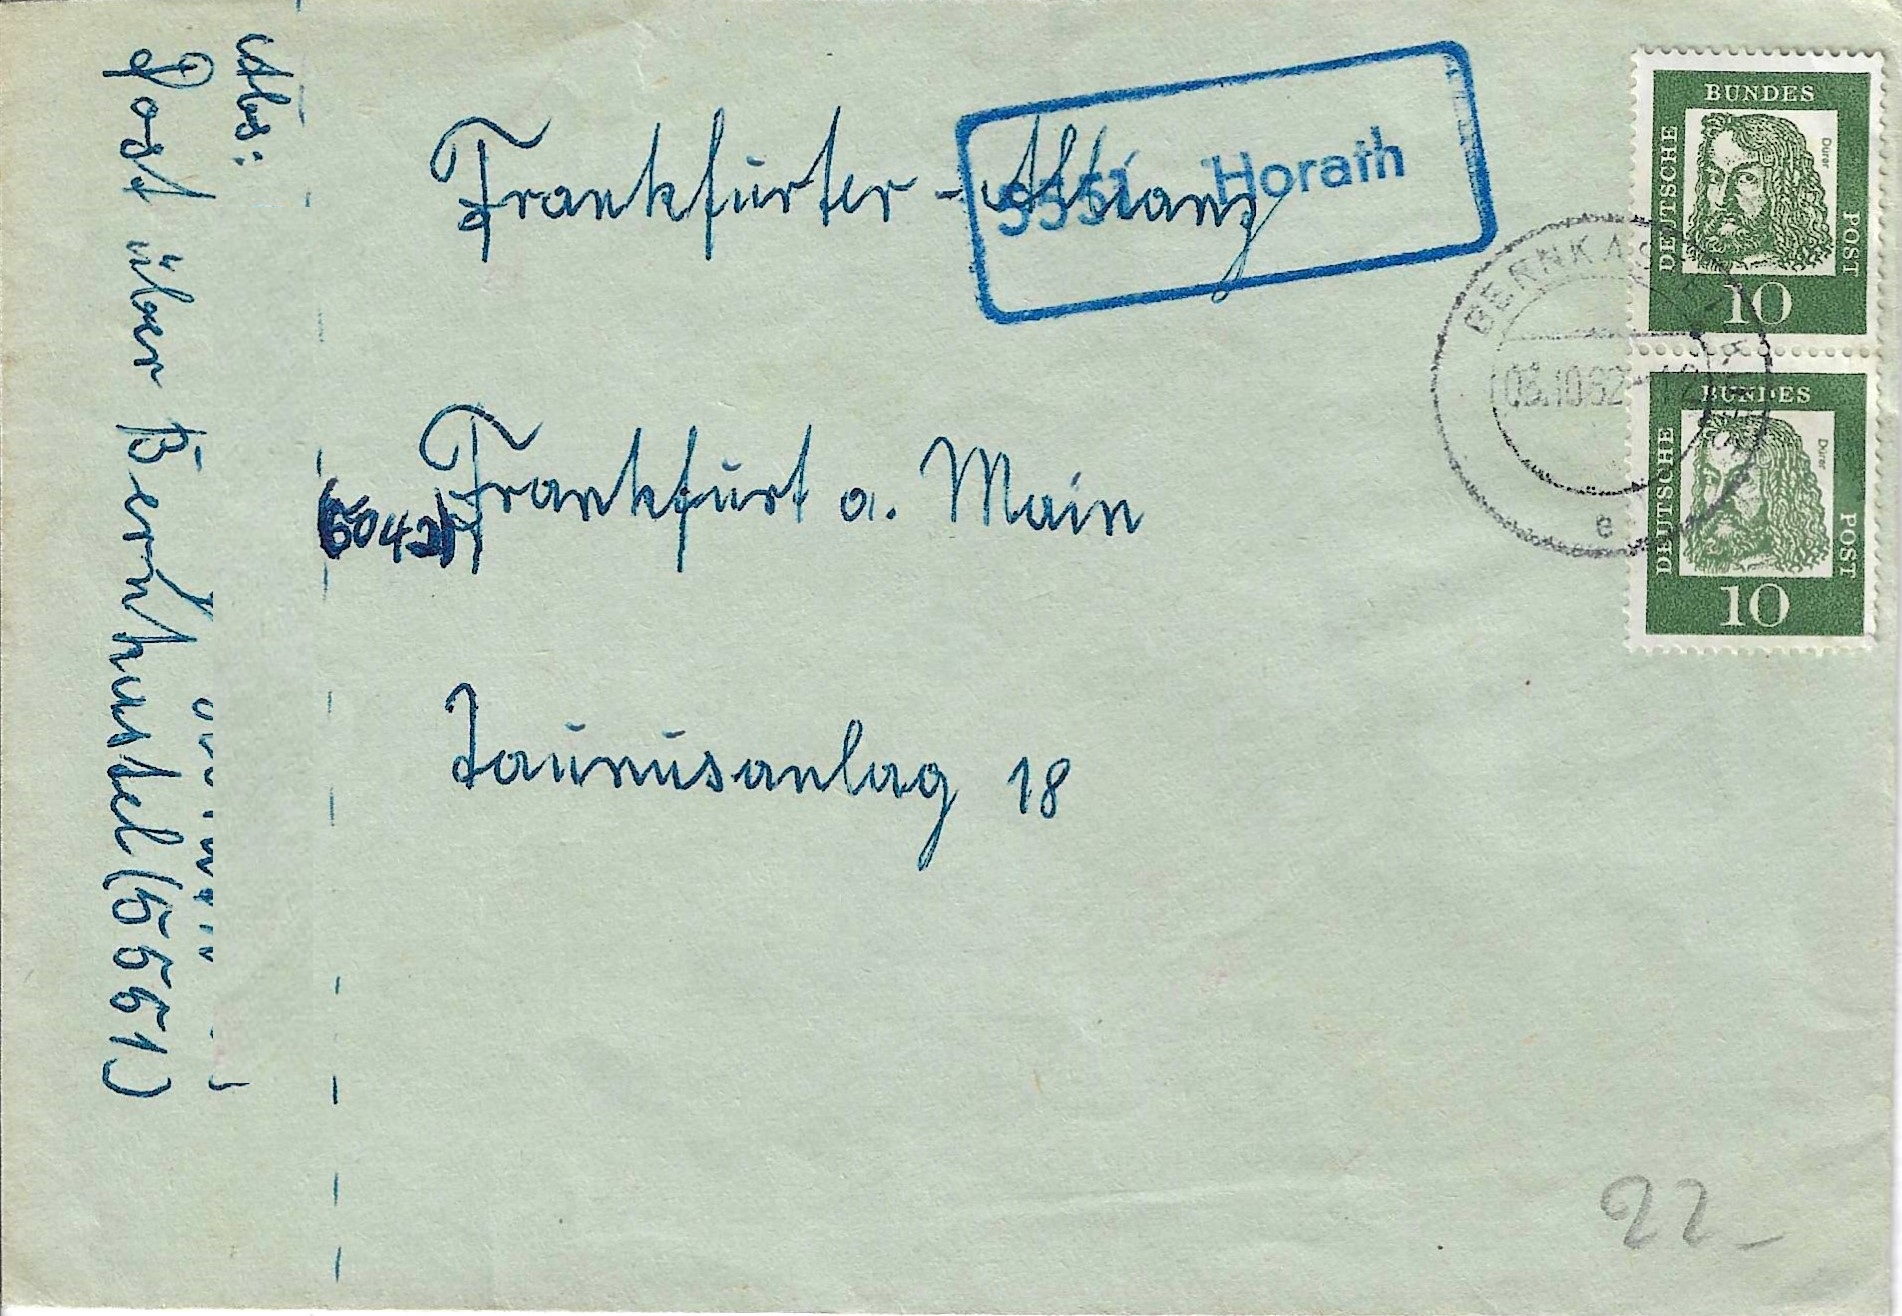 Frankfurter - Allianz
Frankfurt a. Main
Taunusanlag 18
5551 Horath
Abs:
Post über Bernkastel (5551)
BUNDES
DEUTSCHE
POST
Dürer
10
BUNDES
DEUTSCHE
POST
Dürer
10
03.10.62
e
22-